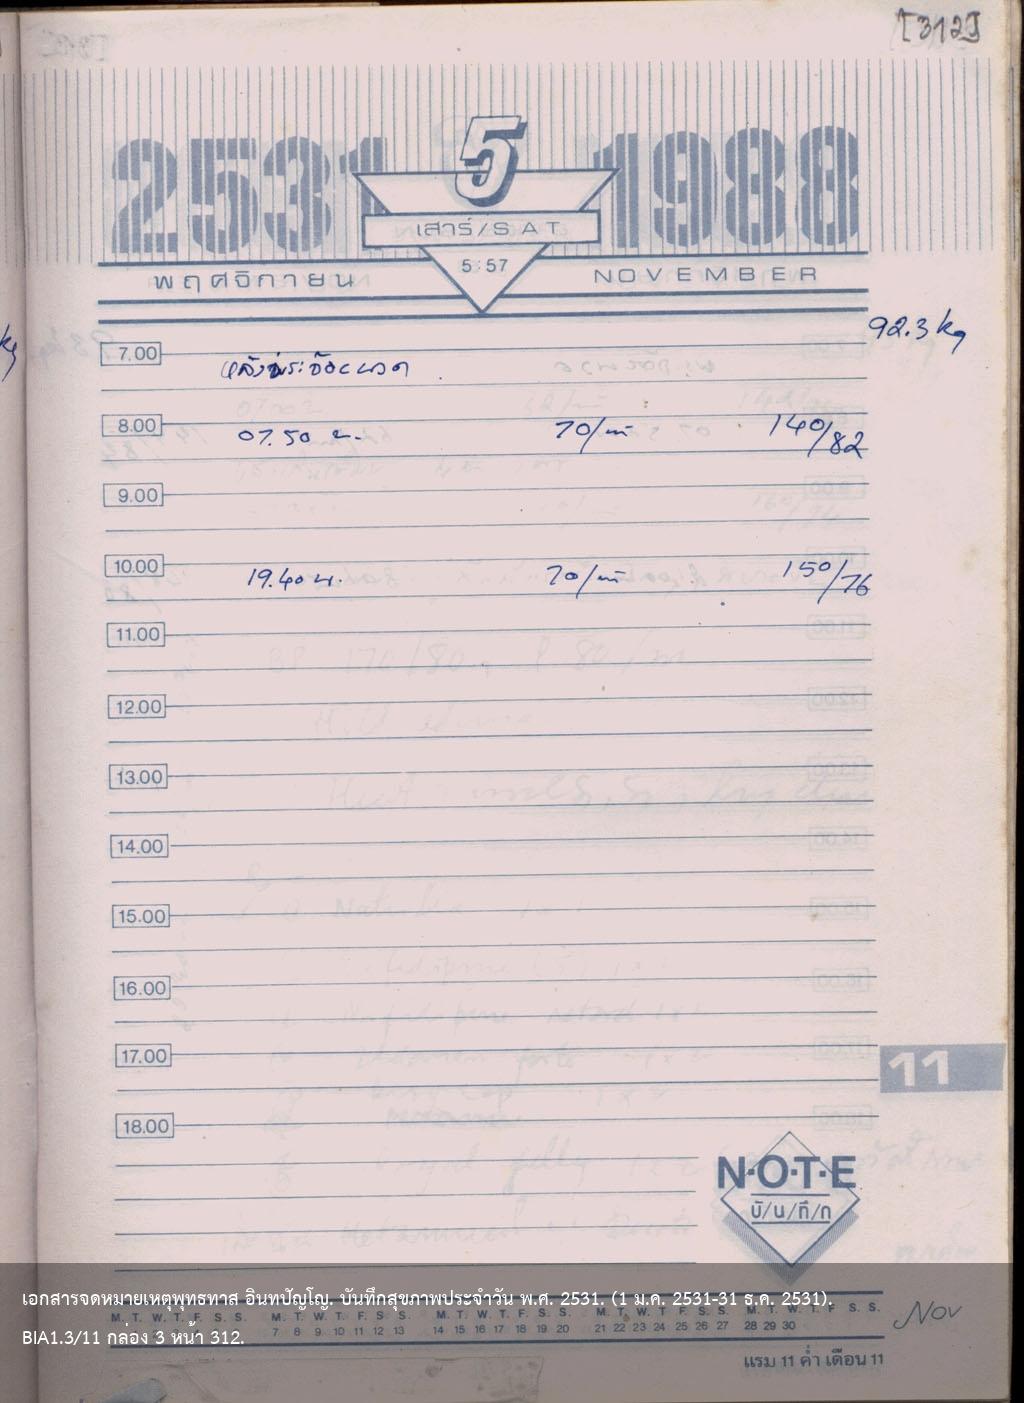 [312]
2531 5 1988
เสาร์/SAT
5:57
พฤศจิกายน NOVEMBER
92.3 kg
7.00
8.00
07.50 น. 70/ 140/82
9.00
10.00
19.40 น. 70/ 150/76
11.00
12.00
13.00
14.00
15.00
16.00
17.00
11
18.00
N·O·T·E
บั/น/ทึ/ก
เอกสารจดหมายเหตุพุทธทาส อินทปัญโญ. บันทึกสุขภาพประจำวัน พ.ศ. 2531. (1 ม.ค. 2531-31 ธ.ค. 2531).
M. T. W. T. F. S. S. M. T. W. T. F. S. S. M. T. W. T. F. S. S. M. T. W. T. F. S. S. M. T. W. T. F. S. S.
7 8 9 10 11 12 13 14 15 16 17 18 19 20 21 22 23 24 25 26 27 28 29 30
Nov
BIA1.3/11 กล่อง 3 หน้า 312.
แรม 11 ค่ำ เดือน 11